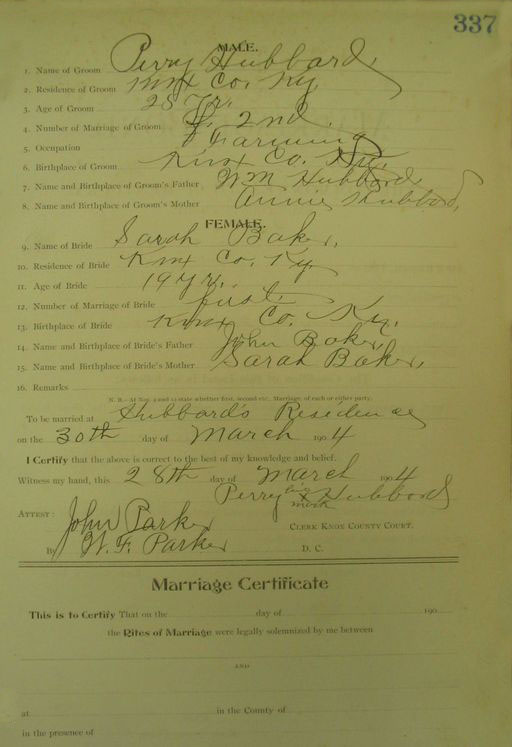 337
MALE.
1. Name of Groom Perry Hubbard
2. Residence of Groom Knx Co. Ky.
3. Age of Groom 25 Yr.
4. Number of Marriage of Groom 2nd
5. Occupation Farming
6. Birthplace of Groom Knox Co. Ky.
7. Name and Birthplace of Groom's Father WM Hubbard
8. Name and Birthplace of Groom's Mother Annie Hubbard,
FEMALE.
9. Name of Bride Sarah Baker,
10. Residence of Bride Knx Co. Ky
11. Age of Bride 19 yr.
12. Number of Marriage of Bride first
13. Birthplace of Bride Knox Co. Ky.
14. Name and Birthplace of Bride's Father John Baker,
15. Name and Birthplace of Bride's Mother Sarah Baker,
16. Remarks
N. B.—At Nos. 4 and 12 state whether first, second etc., Marriage, of each or either party.
To be married at Hubbard's Residence
on the 30th day of March 1904
I Certify that the above is correct to the best of my knowledge and belief.
Witness my hand, this 28th day of March 1904
Perry his x mark Hubbard
ATTEST: John Parker
CLERK KNOX COUNTY COURT.
By W. F. Parker D. C.
Marriage Certificate
This is to Certify That on the day of 190
the Rites of Marriage were legally solemnized by me between
AND
at in the County of
in the presence of